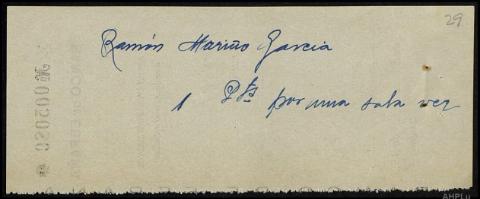 29
Ramón Mariño Garcia
1 Pts por una sola vez
AHPLu